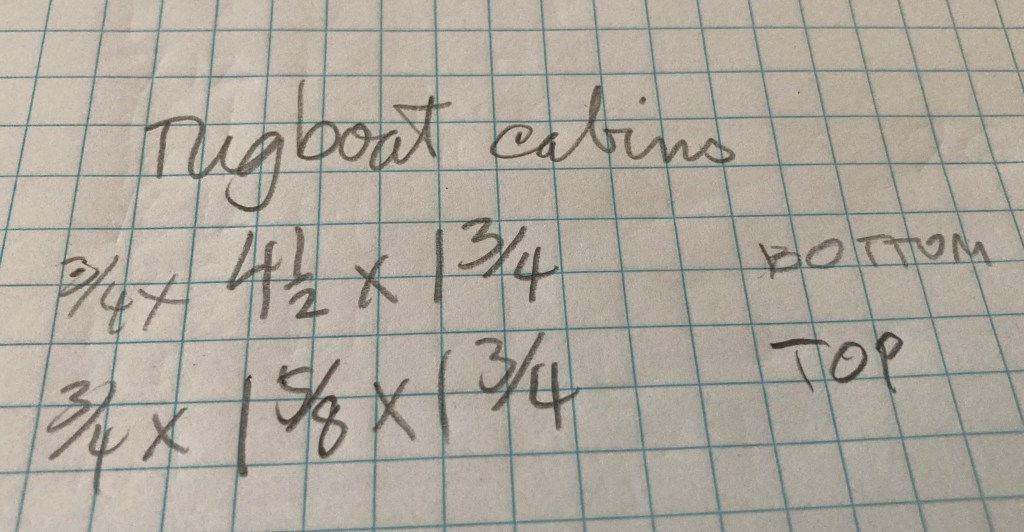 Tugboat cabins
3/4 x 4 1/2 x 1 3/4 BOTTOM
3/4 x 1 5/8 x 1 3/4 TOP